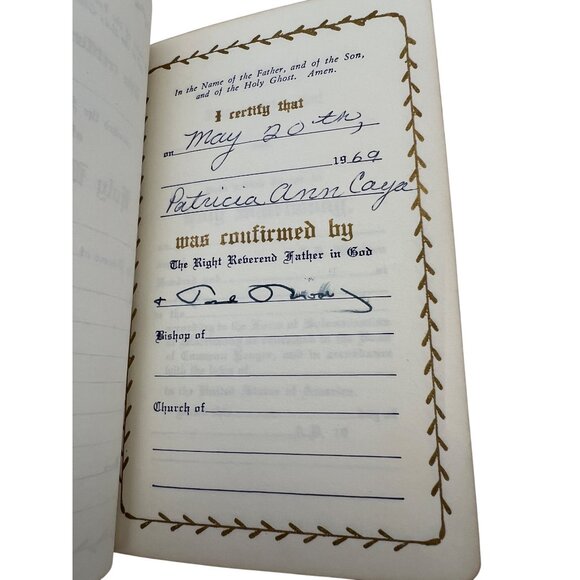 In the Name of the Father, and of the Son,
and of the Holy Ghost. Amen.
I certify that
on May 20th,
1969
Patricia Ann Caya
was confirmed by
The Right Reverend Father in God
+
Bishop of
Church of